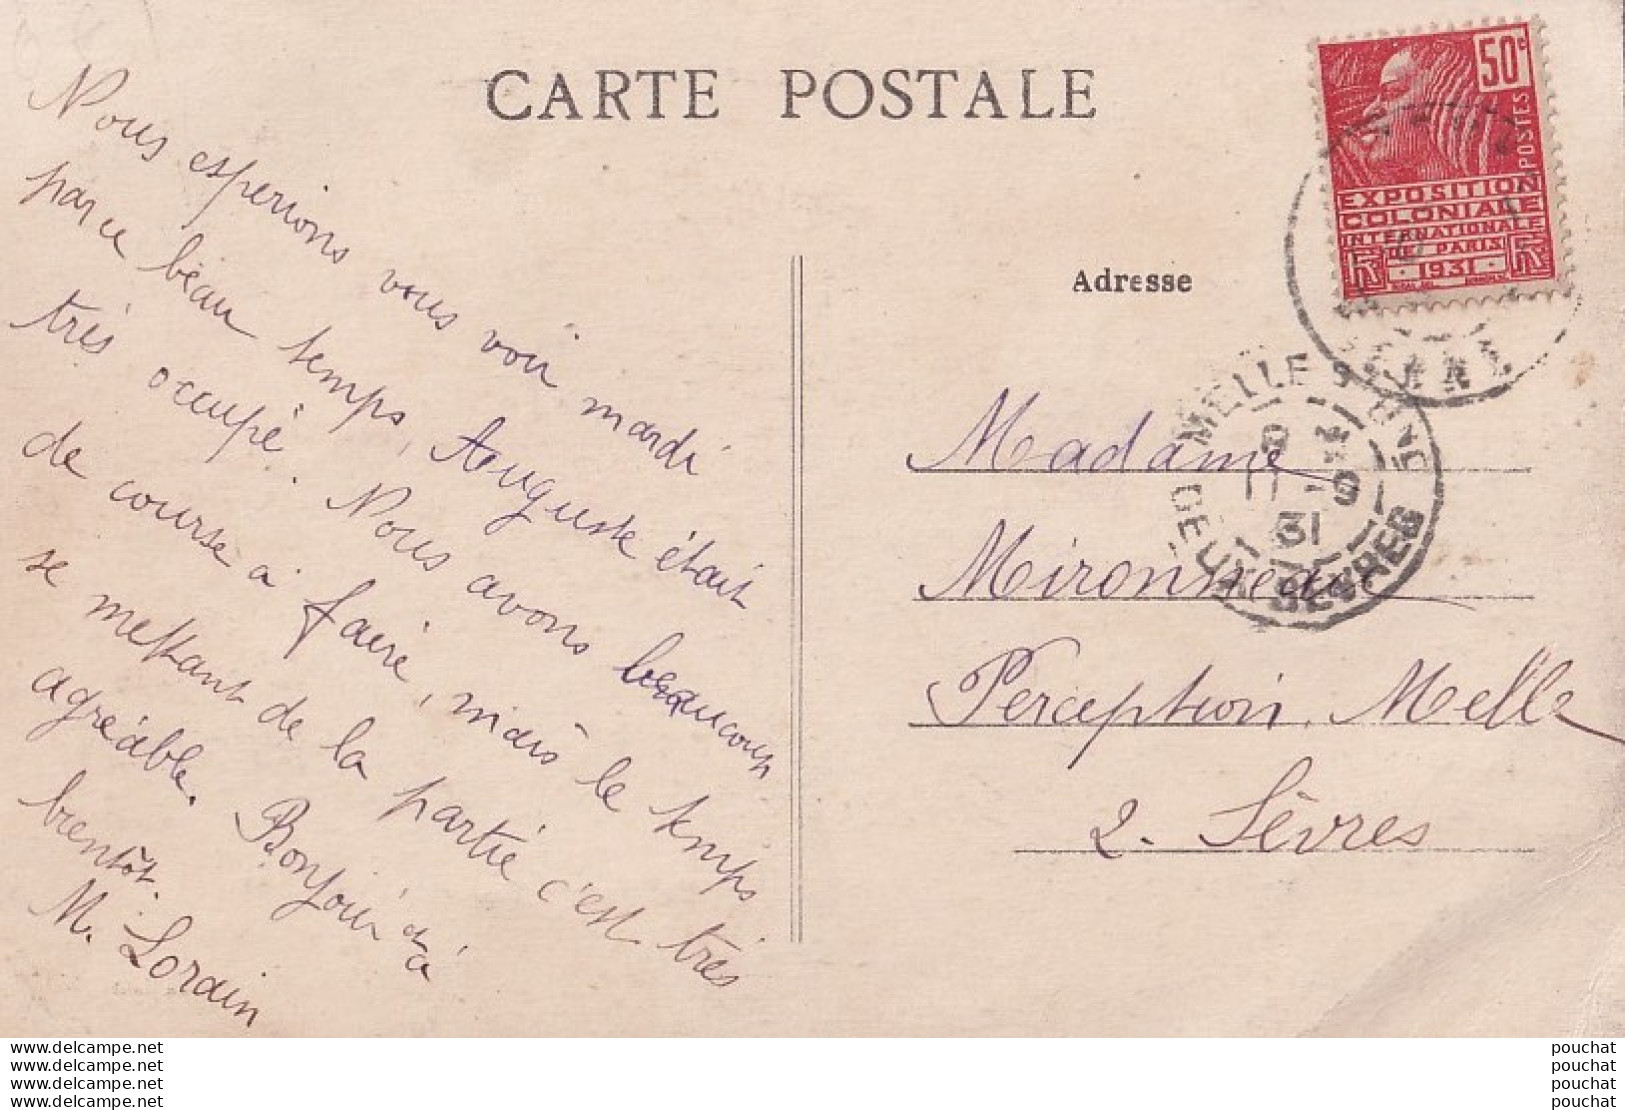 CARTE POSTALE
Nous esperions vous voir mardi
par ce beau temps, Auguste était
très occupé. Nous avons beaucoup
de course à faire, mais le temps
se mettant de la partie c'est très
agréable. Bonjour et à
bientôt.
M. Lorain
50c
POSTES
EXPOSITION
COLONIALE
INTERNATIONALE
DE PARIS
1931
Adresse
MELLE S
DEUX SÈVRES
11 -9
31
Madame
Mironneau
Perception Melle
2. Sèvres
www.delcampe.net
www.delcampe.net
www.delcampe.net
www.delcampe.net
pouchat
pouchat
pouchat
pouchat